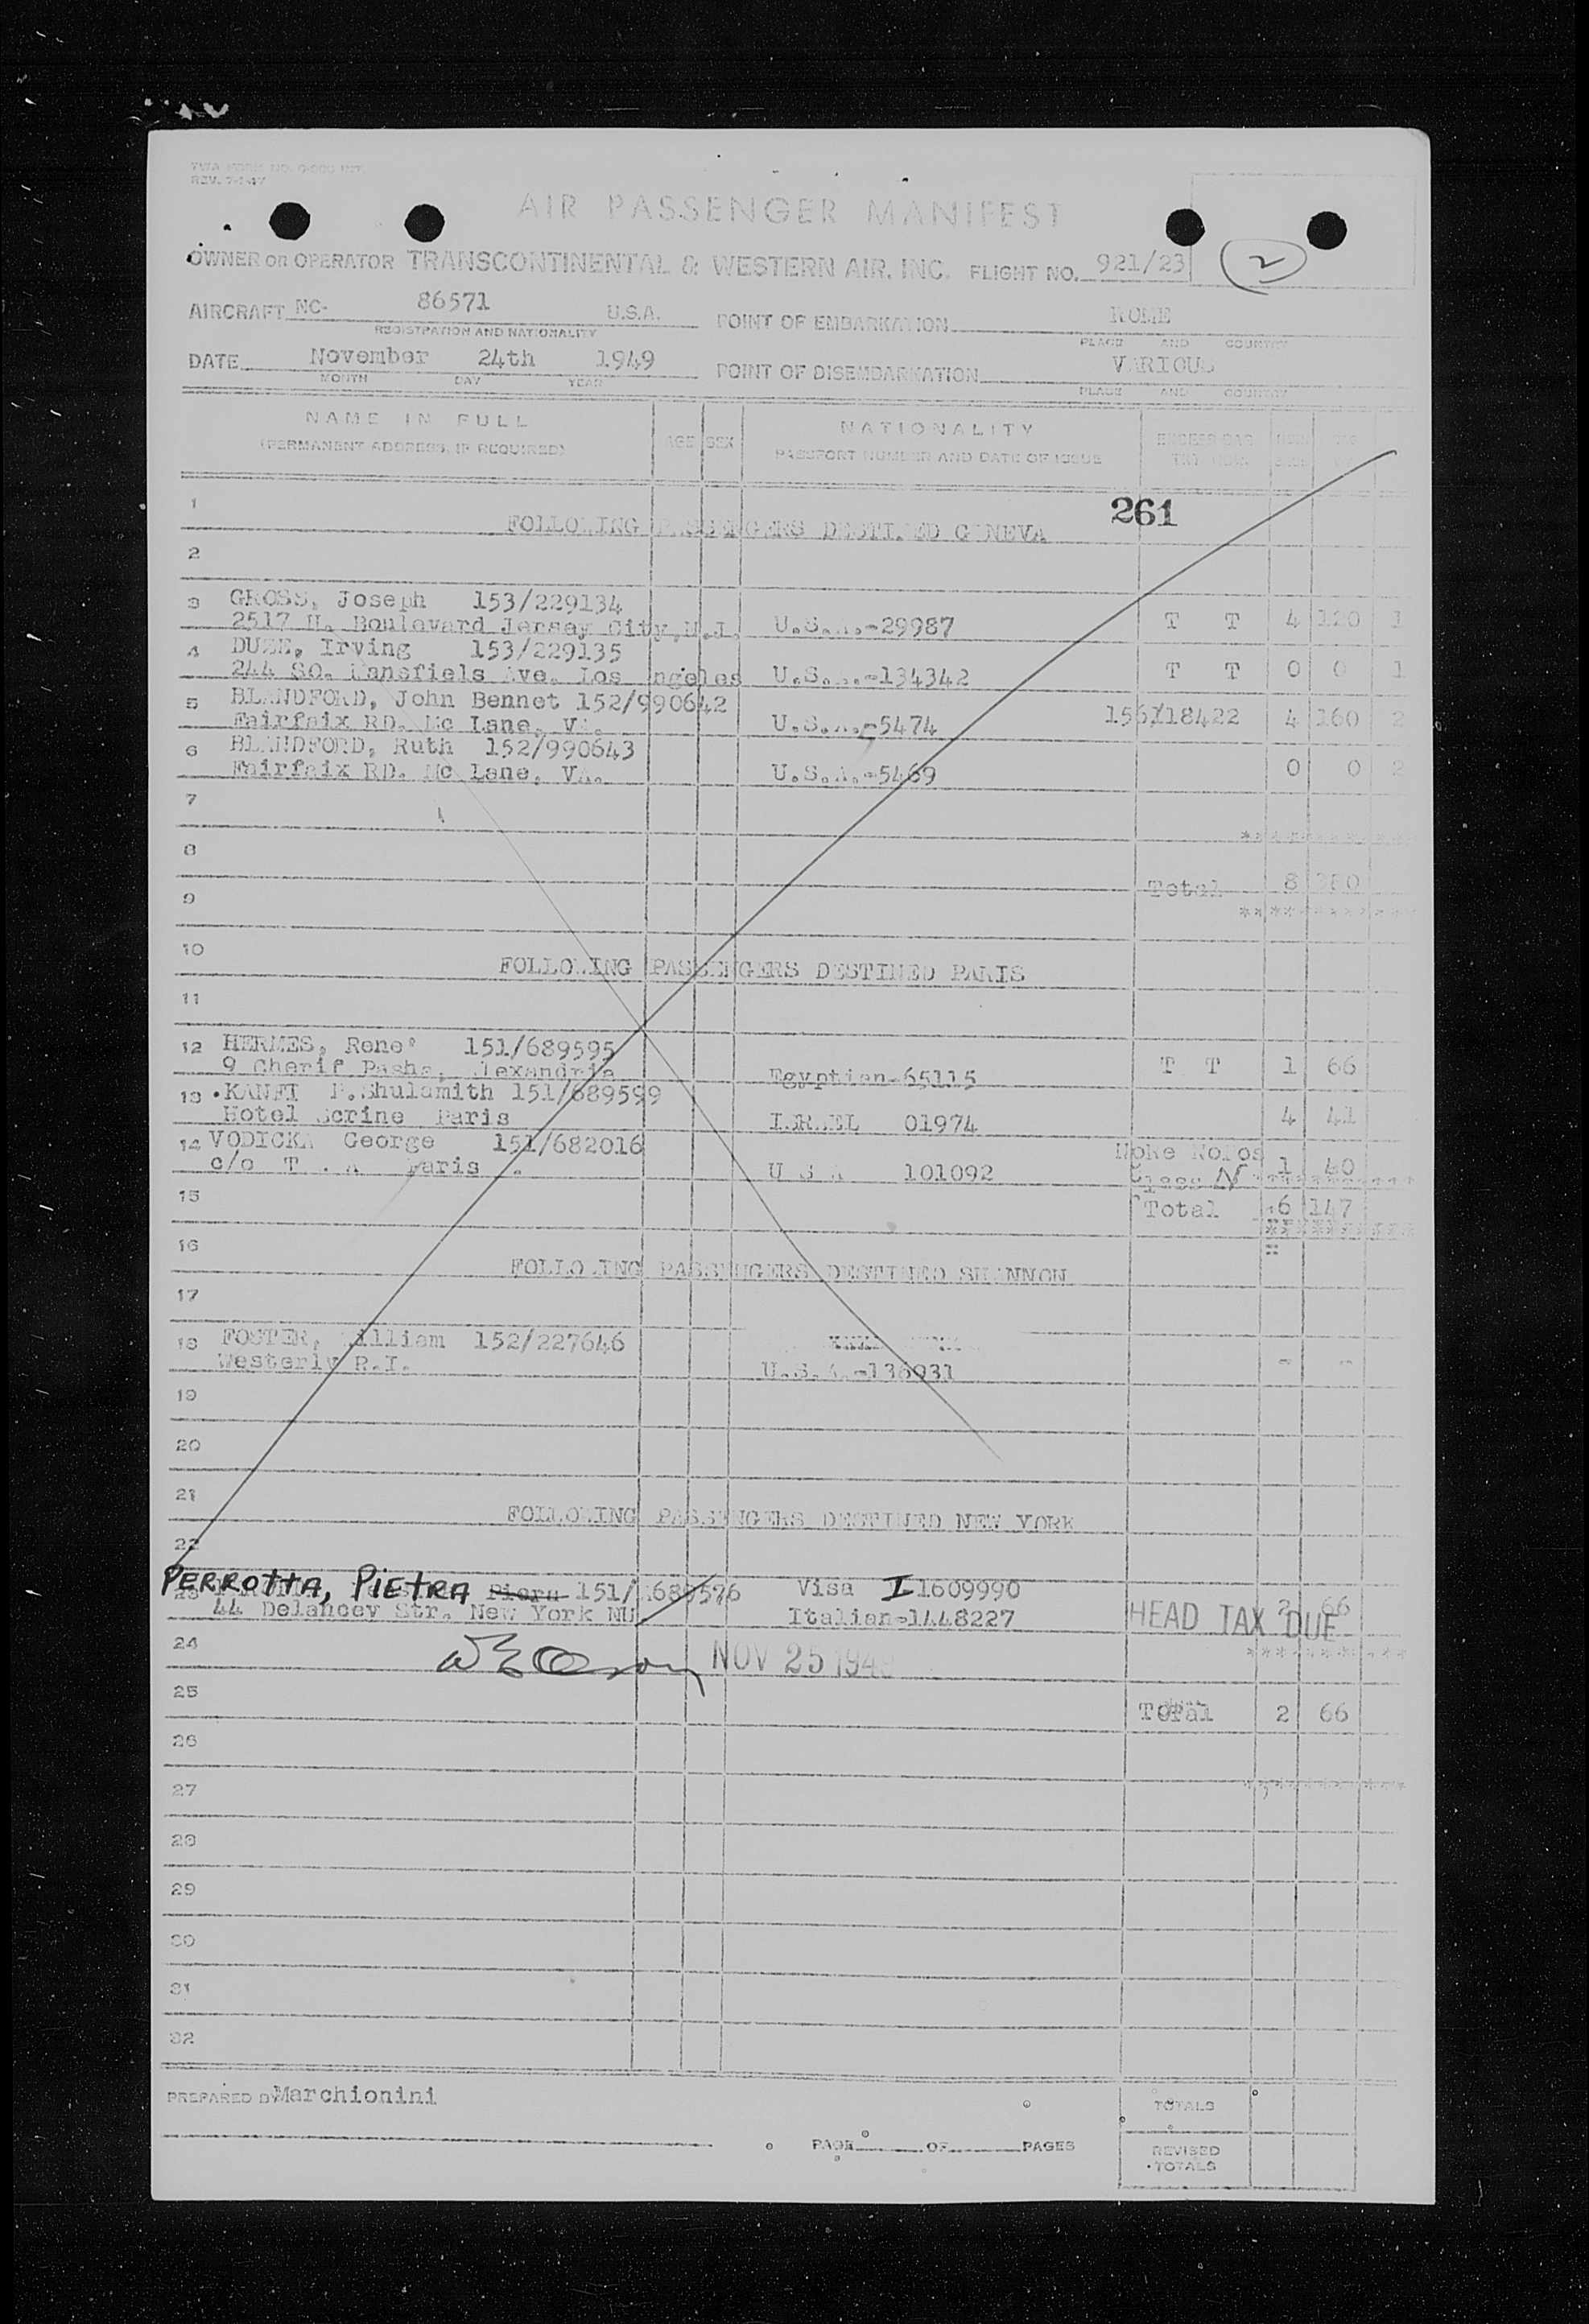 REV. 7-1-47
AIR PASSENGER MANIFEST
OWNER OR OPERATOR TRANSCONTINENTAL & WESTERN AIR, INC. FLIGHT NO. 921/23 2
AIRCRAFT NC- 86571 U.S.A. POINT OF EMBARKATION ROME
REGISTRATION AND NATIONALITY PLACE AND COUNTRY
DATE November 24th 1949 POINT OF DISEMBARKATION VARIOUS
MONTH DAY YEAR PLACE AND COUNTRY
NAME IN FULL AGE SEX NATIONALITY EXCESS BAG
(PERMANENT ADDRESS, IF REQUIRED) PASSPORT NUMBER AND DATE OF ISSUE
1 261
FOLLOWING PASSENGERS DESTINED GENEVA
2
3 GROSS, Joseph 153/229134
2517 H. Boulevard Jersey City, N.J. U.S.A.-29987 T T 4 120 1
4 DUZE, Irving 153/229135
244 SO. Mansfiels Ave. Los Angeles U.S.A.-134342 T T 0 0 1
5 BLANDFORD, John Bennet 152/990642
Fairfaix RD. Mc Lane, VA. U.S.A.-5474 156/118422 4 160 2
6 BLANDFORD, Ruth 152/990643
Fairfaix RD. Mc Lane, VA. U.S.A.-5469 0 0 2
7
8
Total 8
9
10
FOLLOWING PASSENGERS DESTINED PARIS
11
12 HERMES, Rene' 151/689595
9 Cherif Pasha, Alexandria Egyptian-65115 T T 1 66
13 KANFI P.Shulamith 151/689599
Hotel Scrine Paris ISRAEL 01974 4 41
14 VODICKA George 151/682016
c/o T.W.A Paris U S A 101092 1 40
15
Total 6 147
16
FOLLOWING PASSENGERS DESTINED SHANNON
17
18 FOSTER, William 152/227646
Westerly R.I. U.S.A.-136931 - -
19
20
21
FOLLOWING PASSENGERS DESTINED NEW YORK
22
PERROTTA, PIETRA Piera 151/689576 Visa I 1609990
23 44 Delancey Str. New York NU Italian-1448227 HEAD TAX DUE 2 66
24 NOV 25 1949
25
Total 2 66
26
27
28
29
30
31
32
PREPARED BY Marchionini
TOTALS
PAGE OF PAGES
REVISED
TOTALS